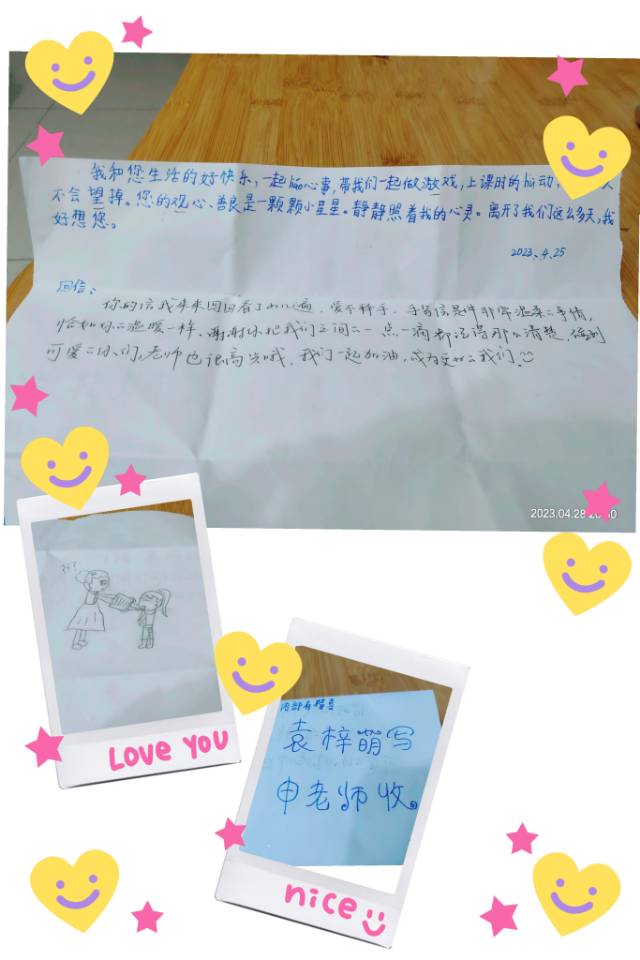 我和您生活的好快乐，一起liáo心事，带我们一起做游戏，上课时的hù动，
不会望掉。您的观心、善良是一颗颗小星星。静静照着我的心灵。离开了我们这么多天，我
好想您。
2023.4.25
回信：
你的信我来来回回看了 遍，爱不释手，手写信是件非常温柔的事情，
恰如你的温暖一样，谢谢你把我们之间的一点一滴都记得那么清楚，碰到
可爱的你们，老师也很高兴哦，我们一起加油，成为更好的我们。
2023.04.28
???
Love you
内部有惊喜
袁梓萌写
申老师收。
nice